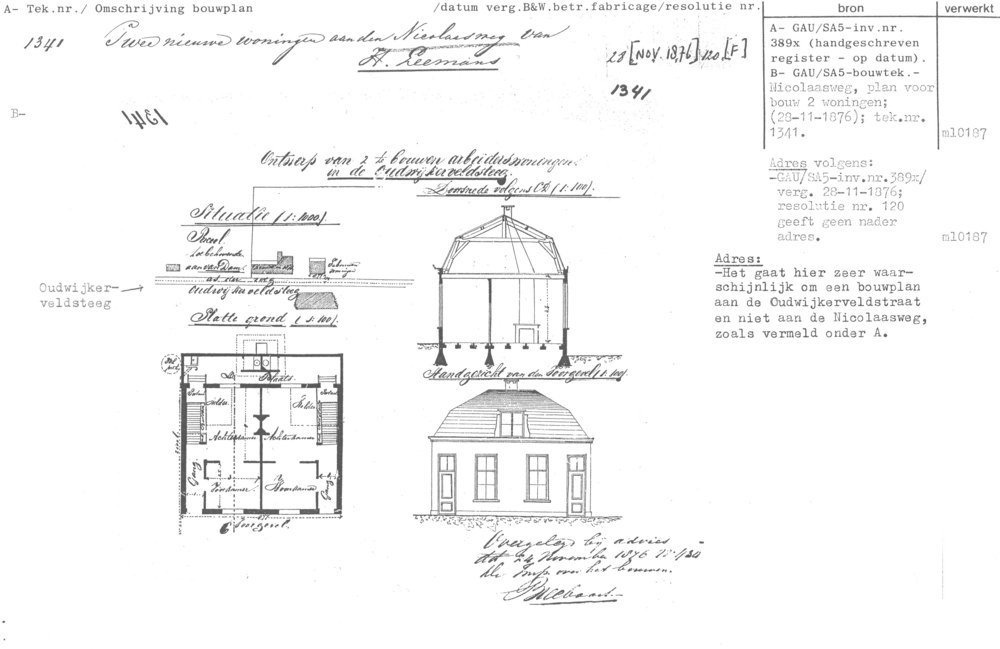 A- Tek.nr./ Omschrijving bouwplan /datum verg.B&W.betr.fabricage/resolutie nr.
bron
verwerkt
1341 Twee nieuwe woningen aan den Nicolaasweg van
H. Leemans
28 [NOV. 18,76] 120 [F]
1341
A- GAU/SA5-inv.nr.
389x (handgeschreven
register - op datum).
B- GAU/SA5-bouwtek.-
Nicolaasweg, plan voor
bouw 2 woningen;
(28-11-1876); tek.nr.
1341.
ml0187
Adres volgens:
-GAU/SA5-inv.nr.389x/
verg. 28-11-1876;
resolutie nr. 120
geeft geen nader
adres.
ml0187
Adres:
-Het gaat hier zeer waar-
schijnlijk om een bouwplan
aan de Oudwijkerveldstraat
en niet aan de Nicolaasweg,
zoals vermeld onder A.
B-
1341
Ontwerp van 2 te bouwen arbeiderswoningen
in de Oudwijkerveldsteeg.
Doorsnede volgens CD (1:100).
Situatie (1:1000)
Perceel
toebehoorende
aan van Dam
Oudwijkerveldsteeg
Oudwijker-
veldsteeg
Platte grond (1:100)
Plaats
Achterkamer
Achterkamer
Gang
Voorkamer
Voorkamer
Gang
Voorgevel
Standgezicht van den Voorgevel (1:100)
Overgelegd bij advies
dd 24 November 1876 No 1/34
der Insp. over het bouwen.